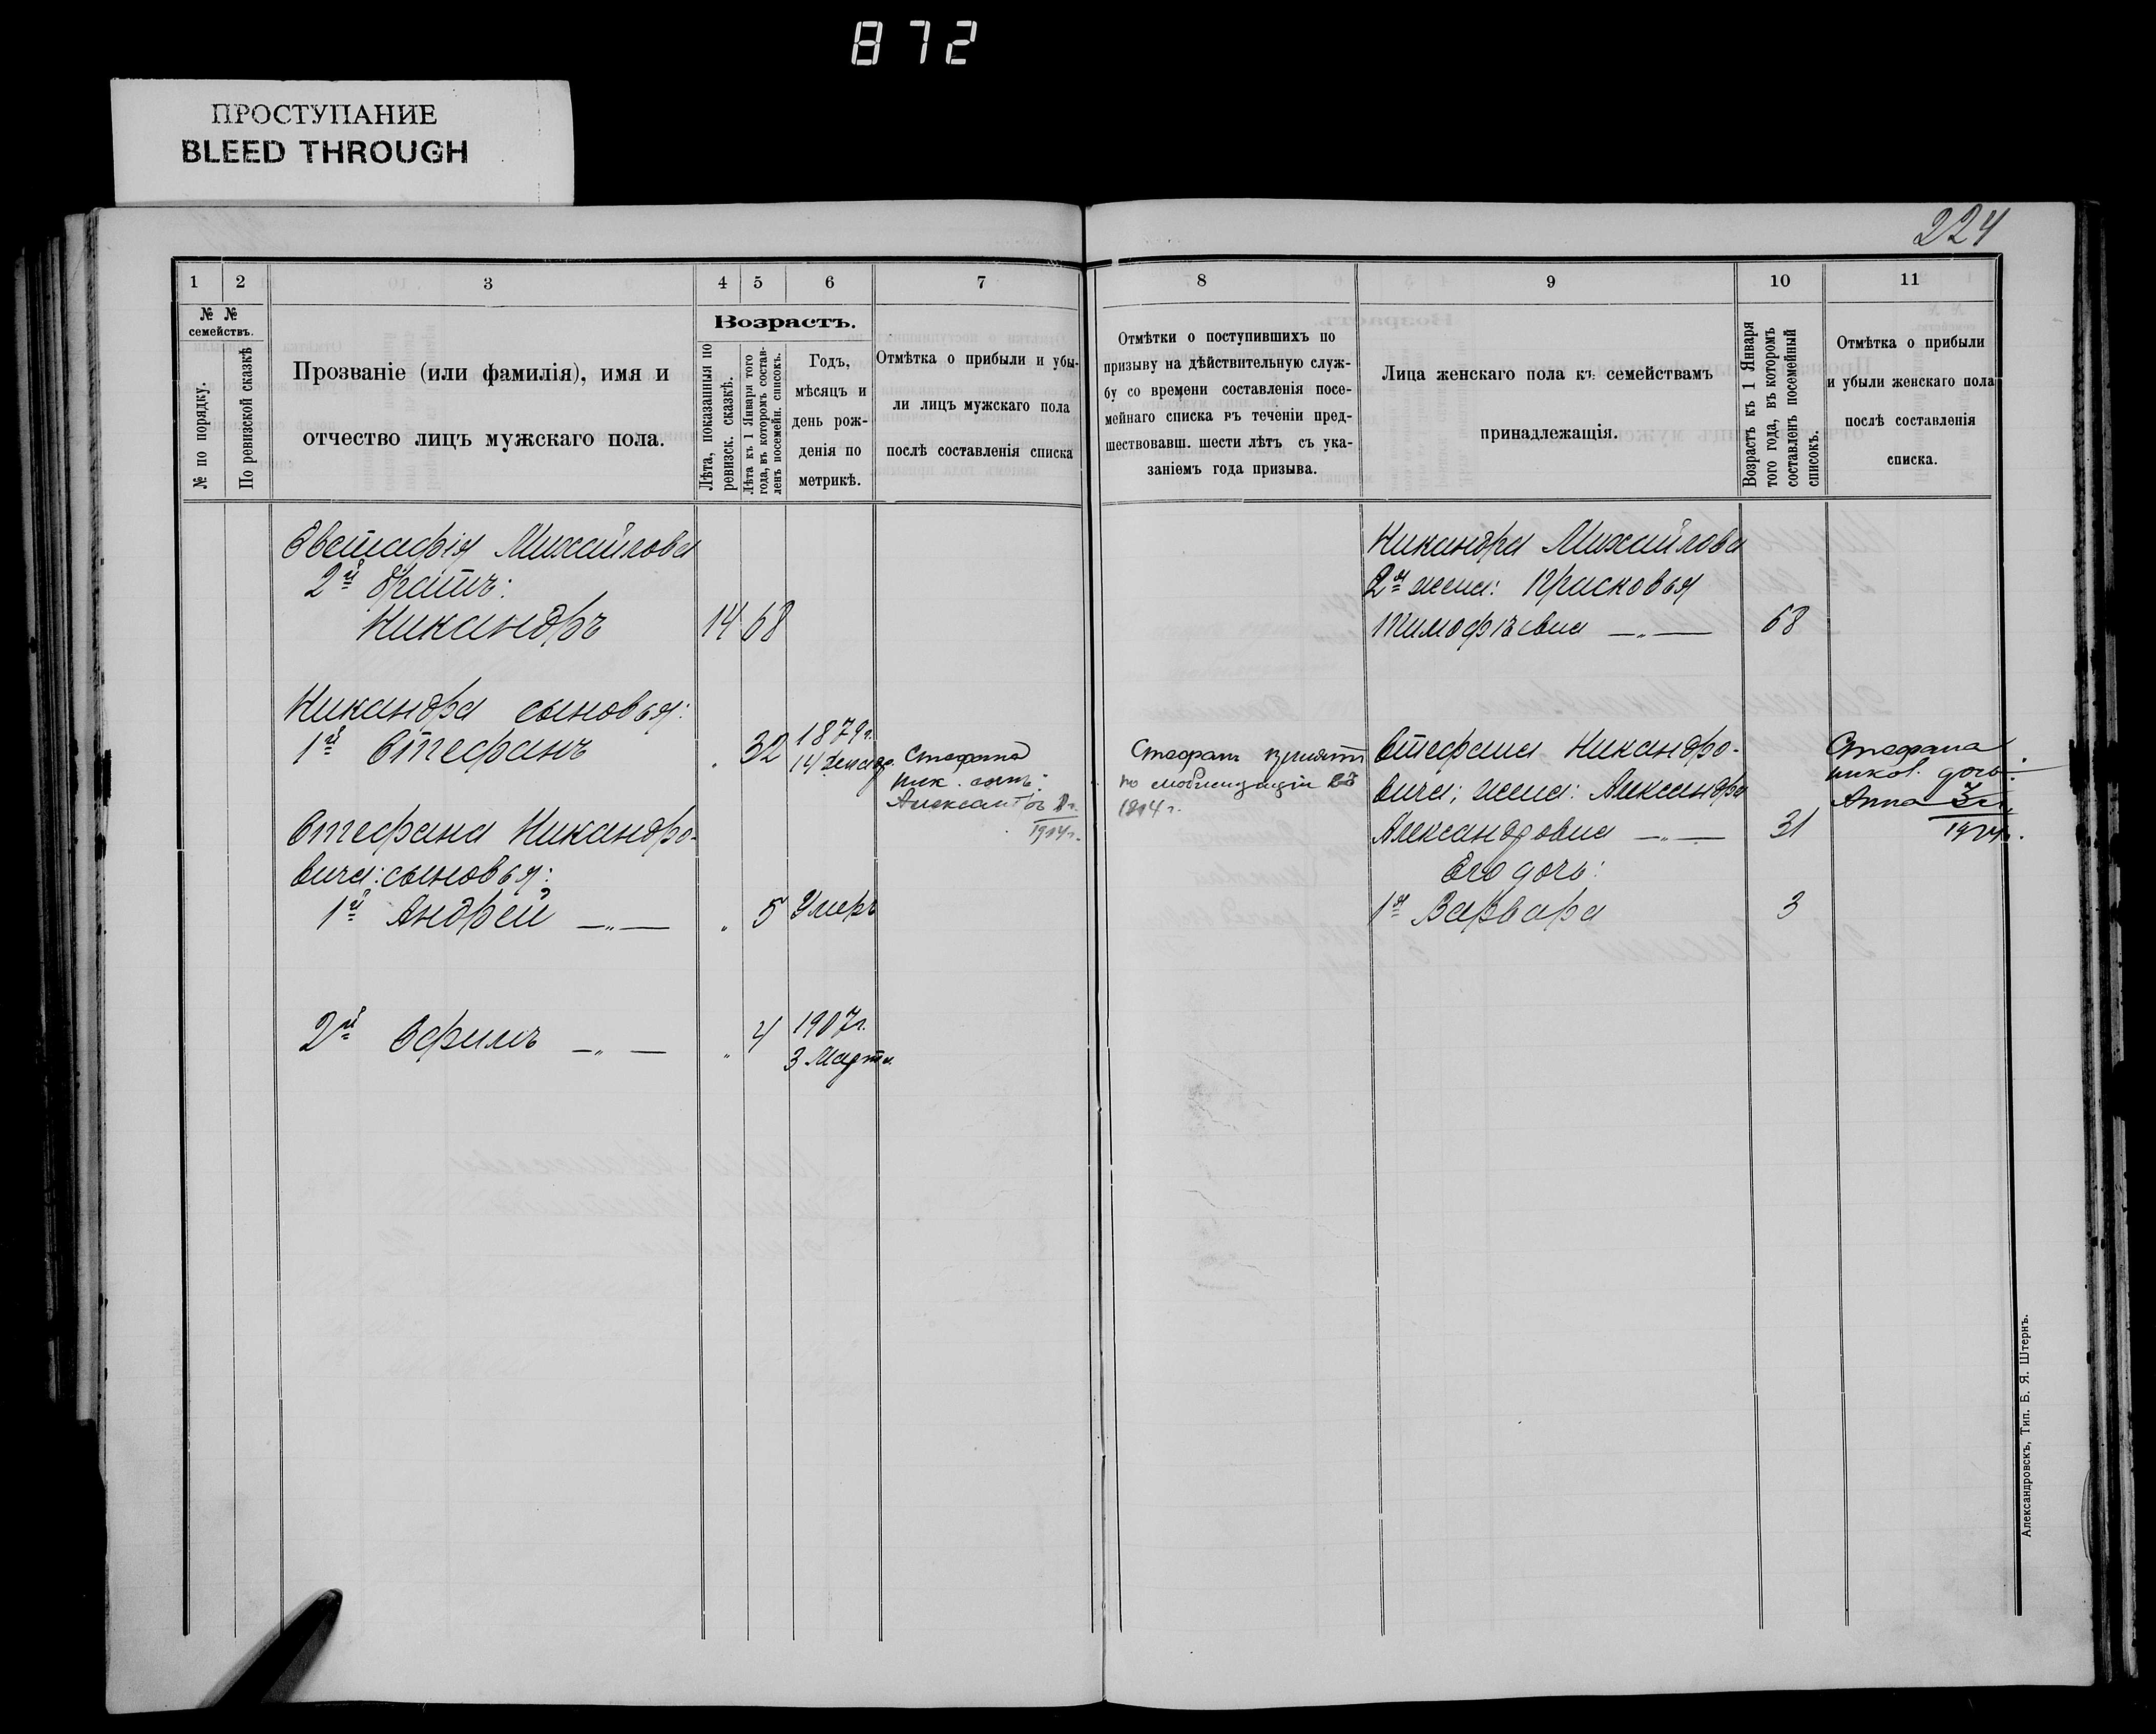 872
ПРОСТУПАНИЕ
BLEED THROUGH
224
1
2
3
4
5
6
7
8
9
10
11
№ №
семействъ.
№ по порядку.
По ревизской сказкѣ
Прозваніе (или фамилія), имя и
отчество лицъ мужскаго пола.
Возрастъ.
Лѣта, показанныя по
ревизск. сказкѣ.
Лѣта къ 1 Января того
года, въ которомъ состав-
ленъ посемейн. списокъ.
Годъ,
мѣсяцъ и
день рож-
денія по
метрикѣ.
Отмѣтка о прибыли и убы-
ли лицъ мужскаго пола
послѣ составленія списка
Отмѣтки о поступившихъ по
призыву на дѣйствительную служ-
бу со времени составленія посе-
мейнаго списка въ теченіи пред-
шествовавш. шести лѣтъ съ ука-
заніемъ года призыва.
Лица женскаго пола къ семействамъ
принадлежащія.
Возрастъ къ 1 Января
того года, въ которомъ
составленъ посемейный
списокъ.
Отмѣтка о прибыли
и убыли женскаго пола
послѣ составленія
списка.
Евстафія Михайлова
2й братъ:
Никандръ 14 68
Никандра сыновья:
1й Стефанъ " 32 1879г.
14 Декабр.
Стефана Никандро-
вича: сыновья:
1й Андрей —"— " 5 Умеръ
2й Ефимъ —"— " 4 1907г.
3 Марта
Стефана
Ник. сынъ:
Александръ
1914г.
Стефанъ принятъ
по мобилизаціи въ
1914г.
Никандра Михайлова
2я жена: Прасковья
Тимофѣевна —"— 68
Стефана Никандро-
вича; жена: Александра
Александровна —"— 31
Его дочь:
1я Варвара 3
Стефана
никол. дочь:
Анна